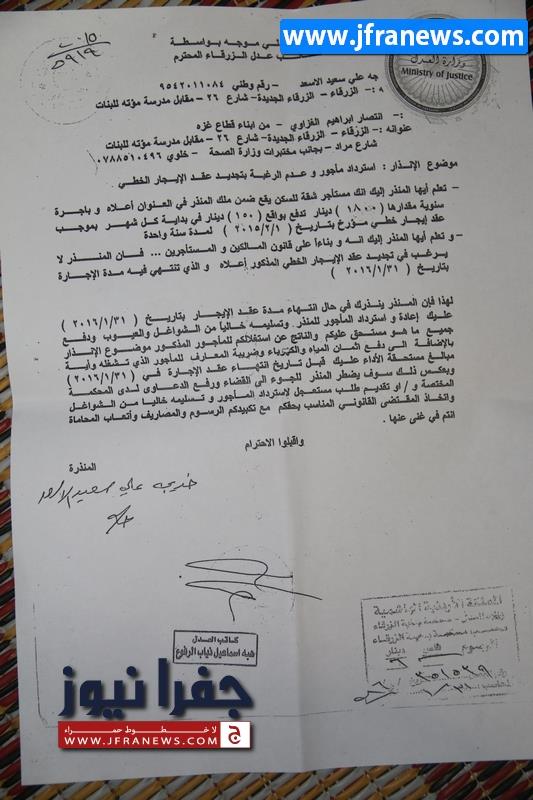 www.jfranews.com
وزارة العدل
Ministry of Justice
موجه بواسطة
عدل الزرقاء المحترم
جه علي سعيد الاسعد - رقم وطني ٩٥٤٢٠١١٠٨٤
ه :- الزرقاء - الزرقاء الجديدة- شارع ٣٦ - مقابل مدرسة مؤته للبنات
:- انتصار ابراهيم الغزاوي - من ابناء قطاع غزه
عنوانه :- الزرقاء - الزرقاء الجديدة- شارع ٣٦ - مقابل مدرسة مؤته للبنات
شارع مراد - بجانب مختبرات وزارة الصحة - خلوي ٠٧٨٨٥١٠٤٩٦
موضوع الإنذار : استرداد مأجور و عدم الرغبة بتجديد عقد الإيجار الخطي
- تعلم أيها المنذر إليك انك مستأجر شقة للسكن يقع ضمن ملك المنذر في العنوان أعلاه و باجرة
سنوية مقدارها ( ١٨٠٠ ) دينار تدفع بواقع ( ١٥٠ ) دينار في بداية كل شهر بموجب
عقد إيجار خطي مؤرخ بتاريخ ( ٢٠١٥/٢/١ ) لمدة سنة واحدة
- و تعلم أيها المنذر إليك انه و بناءا على قانون المالكين و المستأجرين ... فان المنذر لا
يرغب في تجديد عقد الإيجار الخطي المذكور أعلاه و الذي تنتهي فيه مدة الإجارة
بتاريخ ( ٢٠١٦/١/٣١ )
لهذا فإن المنذر ينذرك في حال انتهاء مدة عقد الإيجار بتاريخ ( ٢٠١٦/١/٣١ )
عليك إعادة و استرداد المأجور للمنذر وتسليمه خالياً من الشواغل والعيوب ودفع
جميع ما هو مستحق عليكم والناتج عن استغلالكم للمأجور المذكور موضوع الإنذار
بالإضافة الى دفع اثمان المياه والكهرباء وضريبة المعارف للمأجور الذي تشغله وأية
مبالغ مستحقة الأداء عليك قبل تاريخ انتهاء عقد الإجارة في (٢٠١٦/١/٣١)
وبعكس ذلك سوف يضطر المنذر للجوء الى القضاء ورفع الدعاوى لدى المحكمة
المختصة و / او تقديم طلب مستعجل لاسترداد المأجور و تسليمه خاليا من الشواغل
واتخاذ المقتضى القانوني المناسب بحقكم مع تكبيدكم الرسوم والمصاريف وأتعاب المحاماة
انتم في غنى عنها .
واقبلوا الاحترام
المنذرة
خديجه علي سعيد الاسعد
كاتب العدل
هبه اسماعيل ذياب الرفوع
المملكة الأردنية الهاشمية
دينار
جفرا نيوز
لا خطوط حمراء
WWW.JFRANEWS.COM